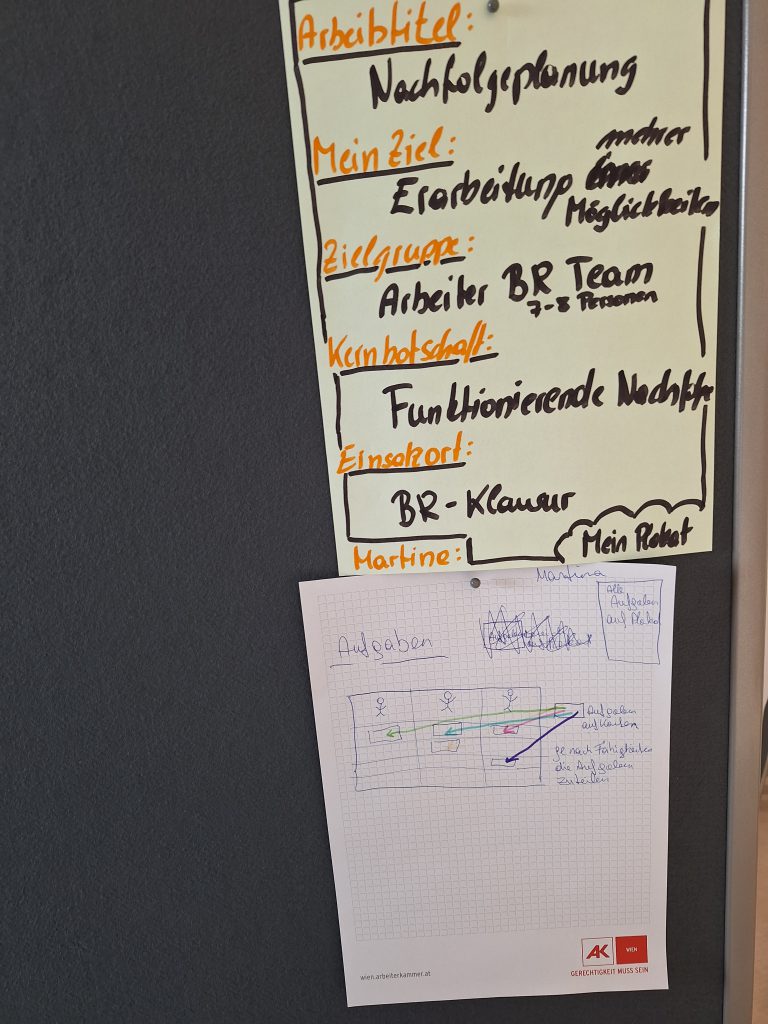 Arbeitstitel:
Nachfolgeplanung
Mein Ziel:
mehrer
Erarbeitung
Möglichkeiten
Zielgruppe:
Arbeiter BR Team
7-8 Personen
Kernbotschaft:
Funktionierende Nachfolge
Einsatzort:
BR-Klausur
Mein Plakat
Martine:
Martina
Alle
Aufgaben
auf Plakat
Aufgaben
Aufgaben
auf Karten
je nach Fähigkeiten
die Aufgaben
zuteilen
wien.arbeiterkammer.at
AK WIEN
GERECHTIGKEIT MUSS SEIN